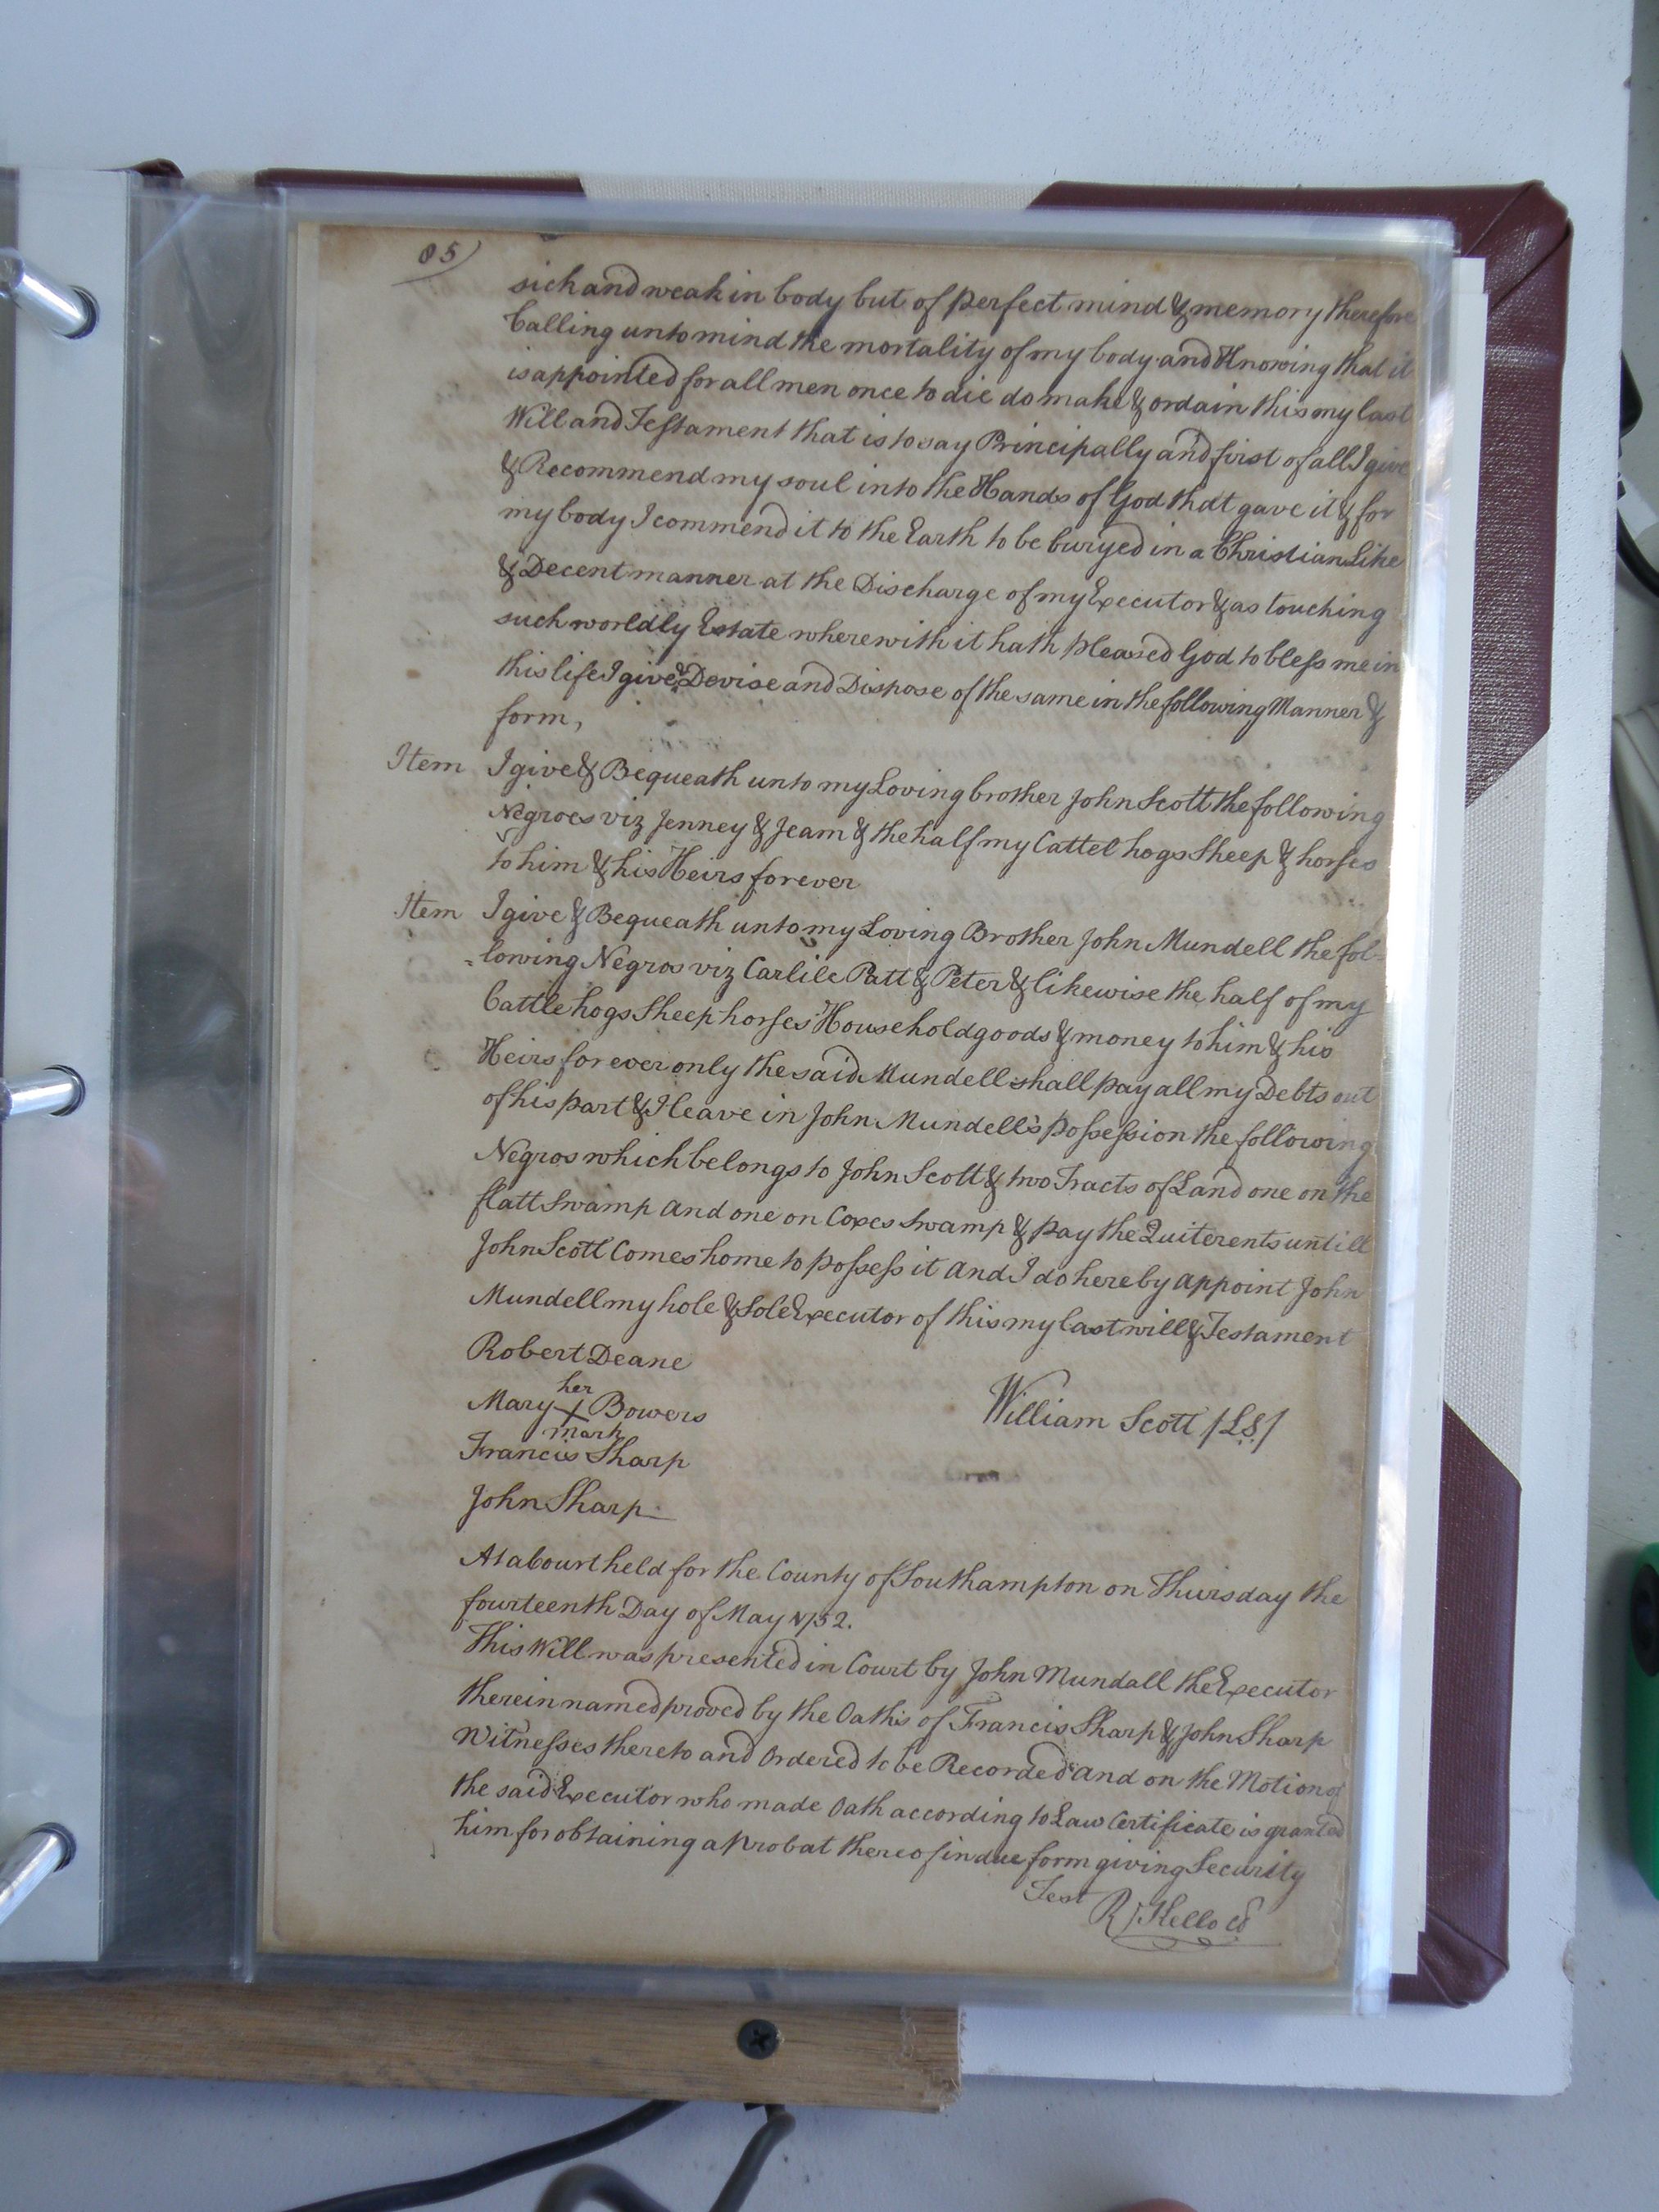 85
sick and weak in body but of perfect mind & memory therefore
Calling unto mind the mortality of my body and Knowing that it
is appointed for all men once to die do make & ordain this my last
Will and Testament that is to say Principally and first of all I give
& Recommend my soul into the Hands of God that gave it & for
my body I commend it to the Earth to be buryed in a Christian Like
& Decent manner at the Discharge of my Executor & as touching
such worldly Estate wherewith it hath pleased God to bless me in
this life I give & Devise and Dispose of the same in the following Manner &
form,
Item I give & Bequeath unto my Loving brother John Scott the following
Negroes viz Jenney & Jeam & the half my Cattel hogs Sheep & horses
to him & his Heirs forever
Item I give & Bequeath unto my Loving Brother John Mundell the fol-
-lowing Negros viz Carlile Patt & Peter & likewise the half of my
Cattle hogs Sheep horses Household goods & money to him & his
Heirs for ever only the said Mundell shall pay all my Debts out
of his part & I leave in John Mundell's possession the following
Negros which belongs to John Scott & two Tracts of Land one on the
flatt Swamp and one on Coxes Swamp & pay the Quiterents untill
John Scott Comes home to possess it and I do hereby appoint John
Mundell my hole & Sole Executor of this my last will & Testament
Robert Deane
her
Mary X Bowers
mark
William Scott /LS/
Francis Sharp
John Sharp
At a Court held for the County of Southampton on Thursday the
fourteenth Day of May 1752.
This Will was presented in Court by John Mundall the Executor
therein named proved by the Oaths of Francis Sharp & John Sharp
Witnesses thereto and Ordered to be Recorded and on the Motion of
the said Executor who made Oath according to Law Certificate is granted
him for obtaining a Probat thereof in due form giving Security
Test
R/Kello Cl